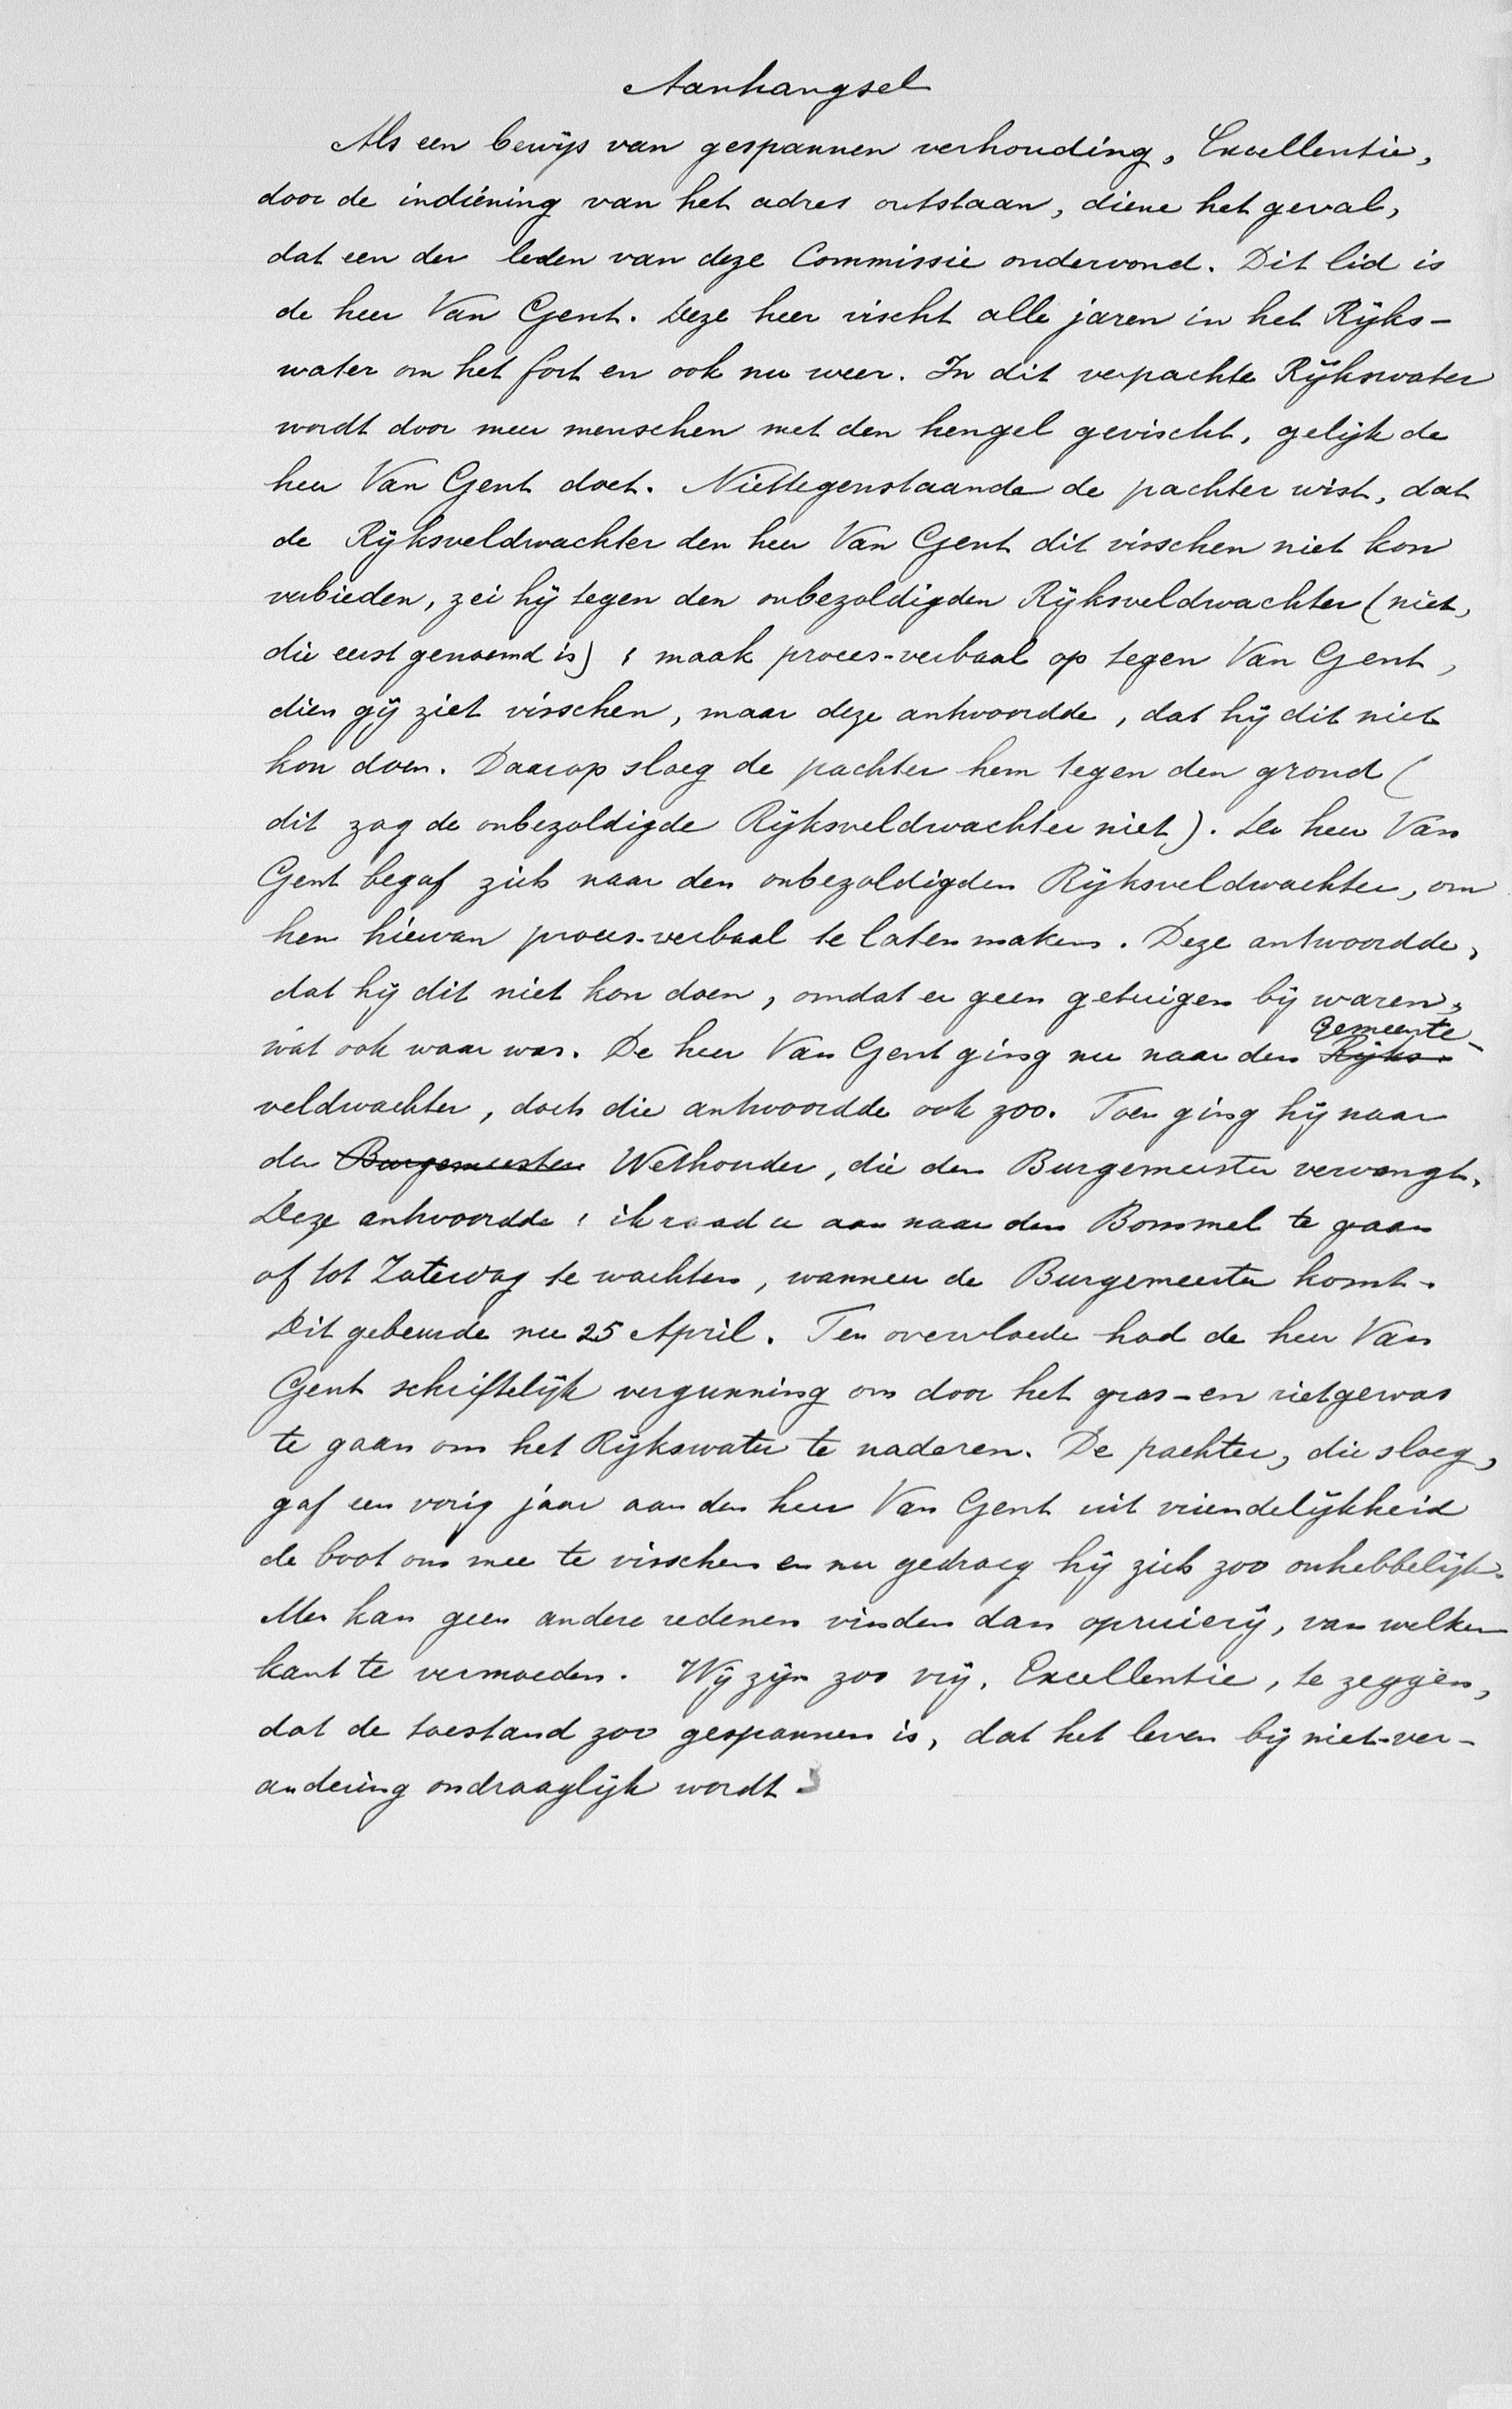 Aanhangsel
Als een bewijs van gespannen verhouding, Excellentie,
door de indiening van het adres ontstaan, diene het geval,
dat een der leden van deze Commissie ondervond. Dit lid is
de heer Van Gent. Deze heer vischt alle jaren in het Rijks-
water om het fort en ook nu weer. In dit verpachte Rijkswater
wordt door meer menschen met den hengel gevischt, gelijk de
heer Van Gent doet. Niettegenstaande de pachter wist, dat
de Rijksveldwachter den heer Van Gent dit visschen niet kon
verbieden, zei hij tegen den onbezoldigden Rijksveldwachter (niet,
die eerst genoemd is): maak proces-verbaal op tegen Van Gent,
dien gij ziet visschen, maar deze antwoordde, dat hij dit niet
kon doen. Daarop sloeg de pachter hem tegen den grond (
dit zag de onbezoldigde Rijksveldwachter niet). De heer Van
Gent begaf zich naar den onbezoldigden Rijksveldwachter, om
hem hiervan proces-verbaal te laten maken. Deze antwoordde,
dat hij dit niet kon doen, omdat er geen getuigen bij waren,
wat ook waar was. De heer Van Gent ging nu naar den Rijks- Gemeente-
veldwachter, doch die antwoordde ook zoo. Toen ging hij naar
den Burgemeester Wethouder, die den Burgemeester vervangt.
Deze antwoordde: ik raad u aan naar den Bommel te gaan
of tot Zaterdag te wachten, wanneer de Burgemeester komt.
Dit gebeurde nu 25 April. Ten overvloede had de heer Van
Gent schriftelijk vergunning om door het gras- en rietgewas
te gaan om het Rijkswater te naderen. De pachter, die sloeg,
gaf een vorig jaar aan den heer Van Gent uit vriendelijkheid
de boot om mee te visschen en nu gedroeg hij zich zoo onhebbelijk.
Men kan geen andere redenen vinden dan opruierij, van welken
kant te vermoeden. Wij zijn zoo vrij, Excellentie, te zeggen,
dat de toestand zoo gespannen is, dat het leven bij niet-ver-
andering ondraaglijk wordt.